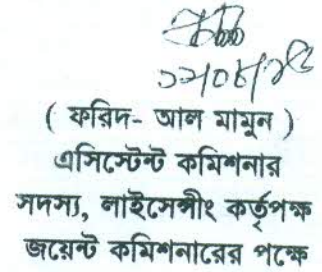 ( ফরিদ- আল মামুন )
এসিস্টেন্ট কমিশনার
সদস্য, লাইসেন্সীং কর্তৃপক্ষ
জয়েন্ট কমিশনারের পক্ষে